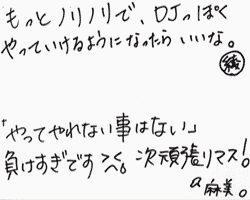 もっとノリノリで、DJっぽく
やっていけるようになったらいいな。
綾
「やってやれない事はない」
負けすぎです＞＜。次頑張リマス!
a麻美。